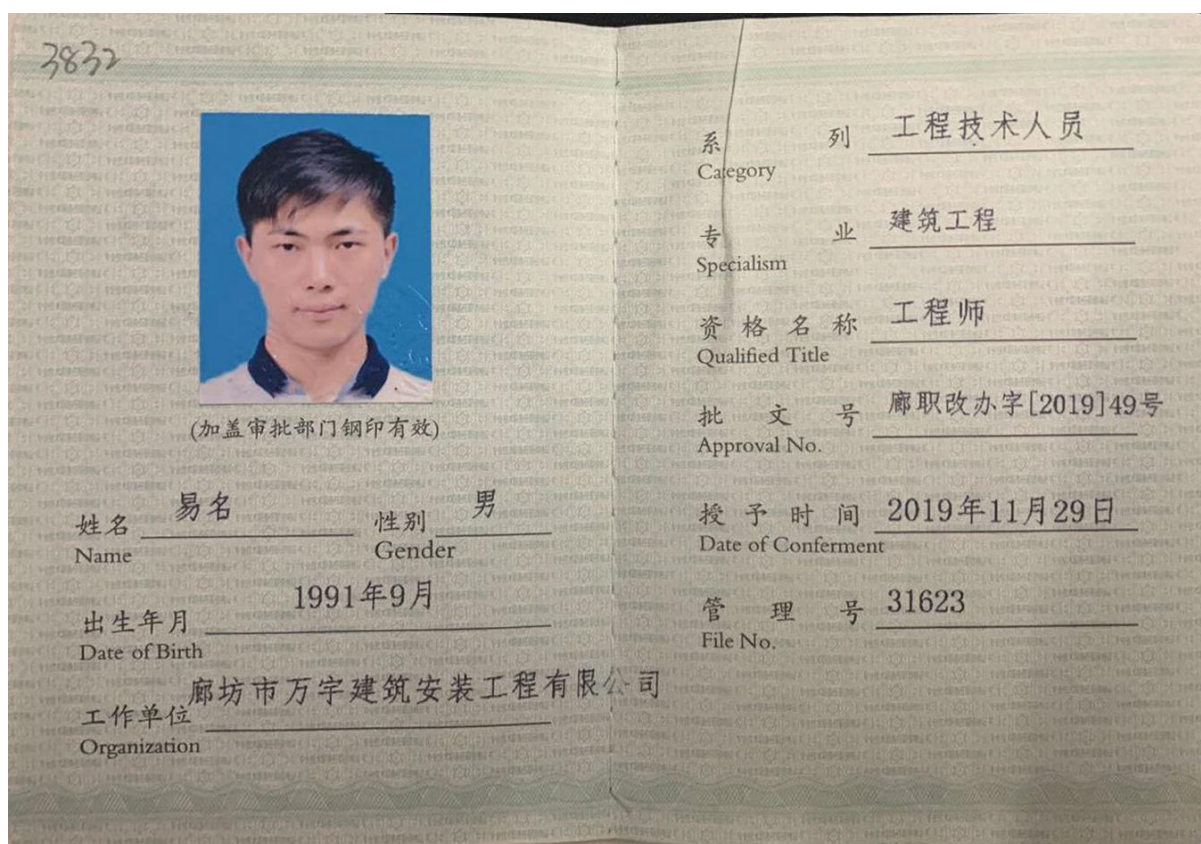 3832
(加盖审批部门钢印有效)
姓名 易名 性别 男
Name Gender
出生年月 1991年9月
Date of Birth
工作单位 廊坊市万宇建筑安装工程有限公司
Organization
系列 工程技术人员
Category
专业 建筑工程
Specialism
资格名称 工程师
Qualified Title
批文号 廊职改办字[2019]49号
Approval No.
授予时间 2019年11月29日
Date of Conferment
管理号 31623
File No.